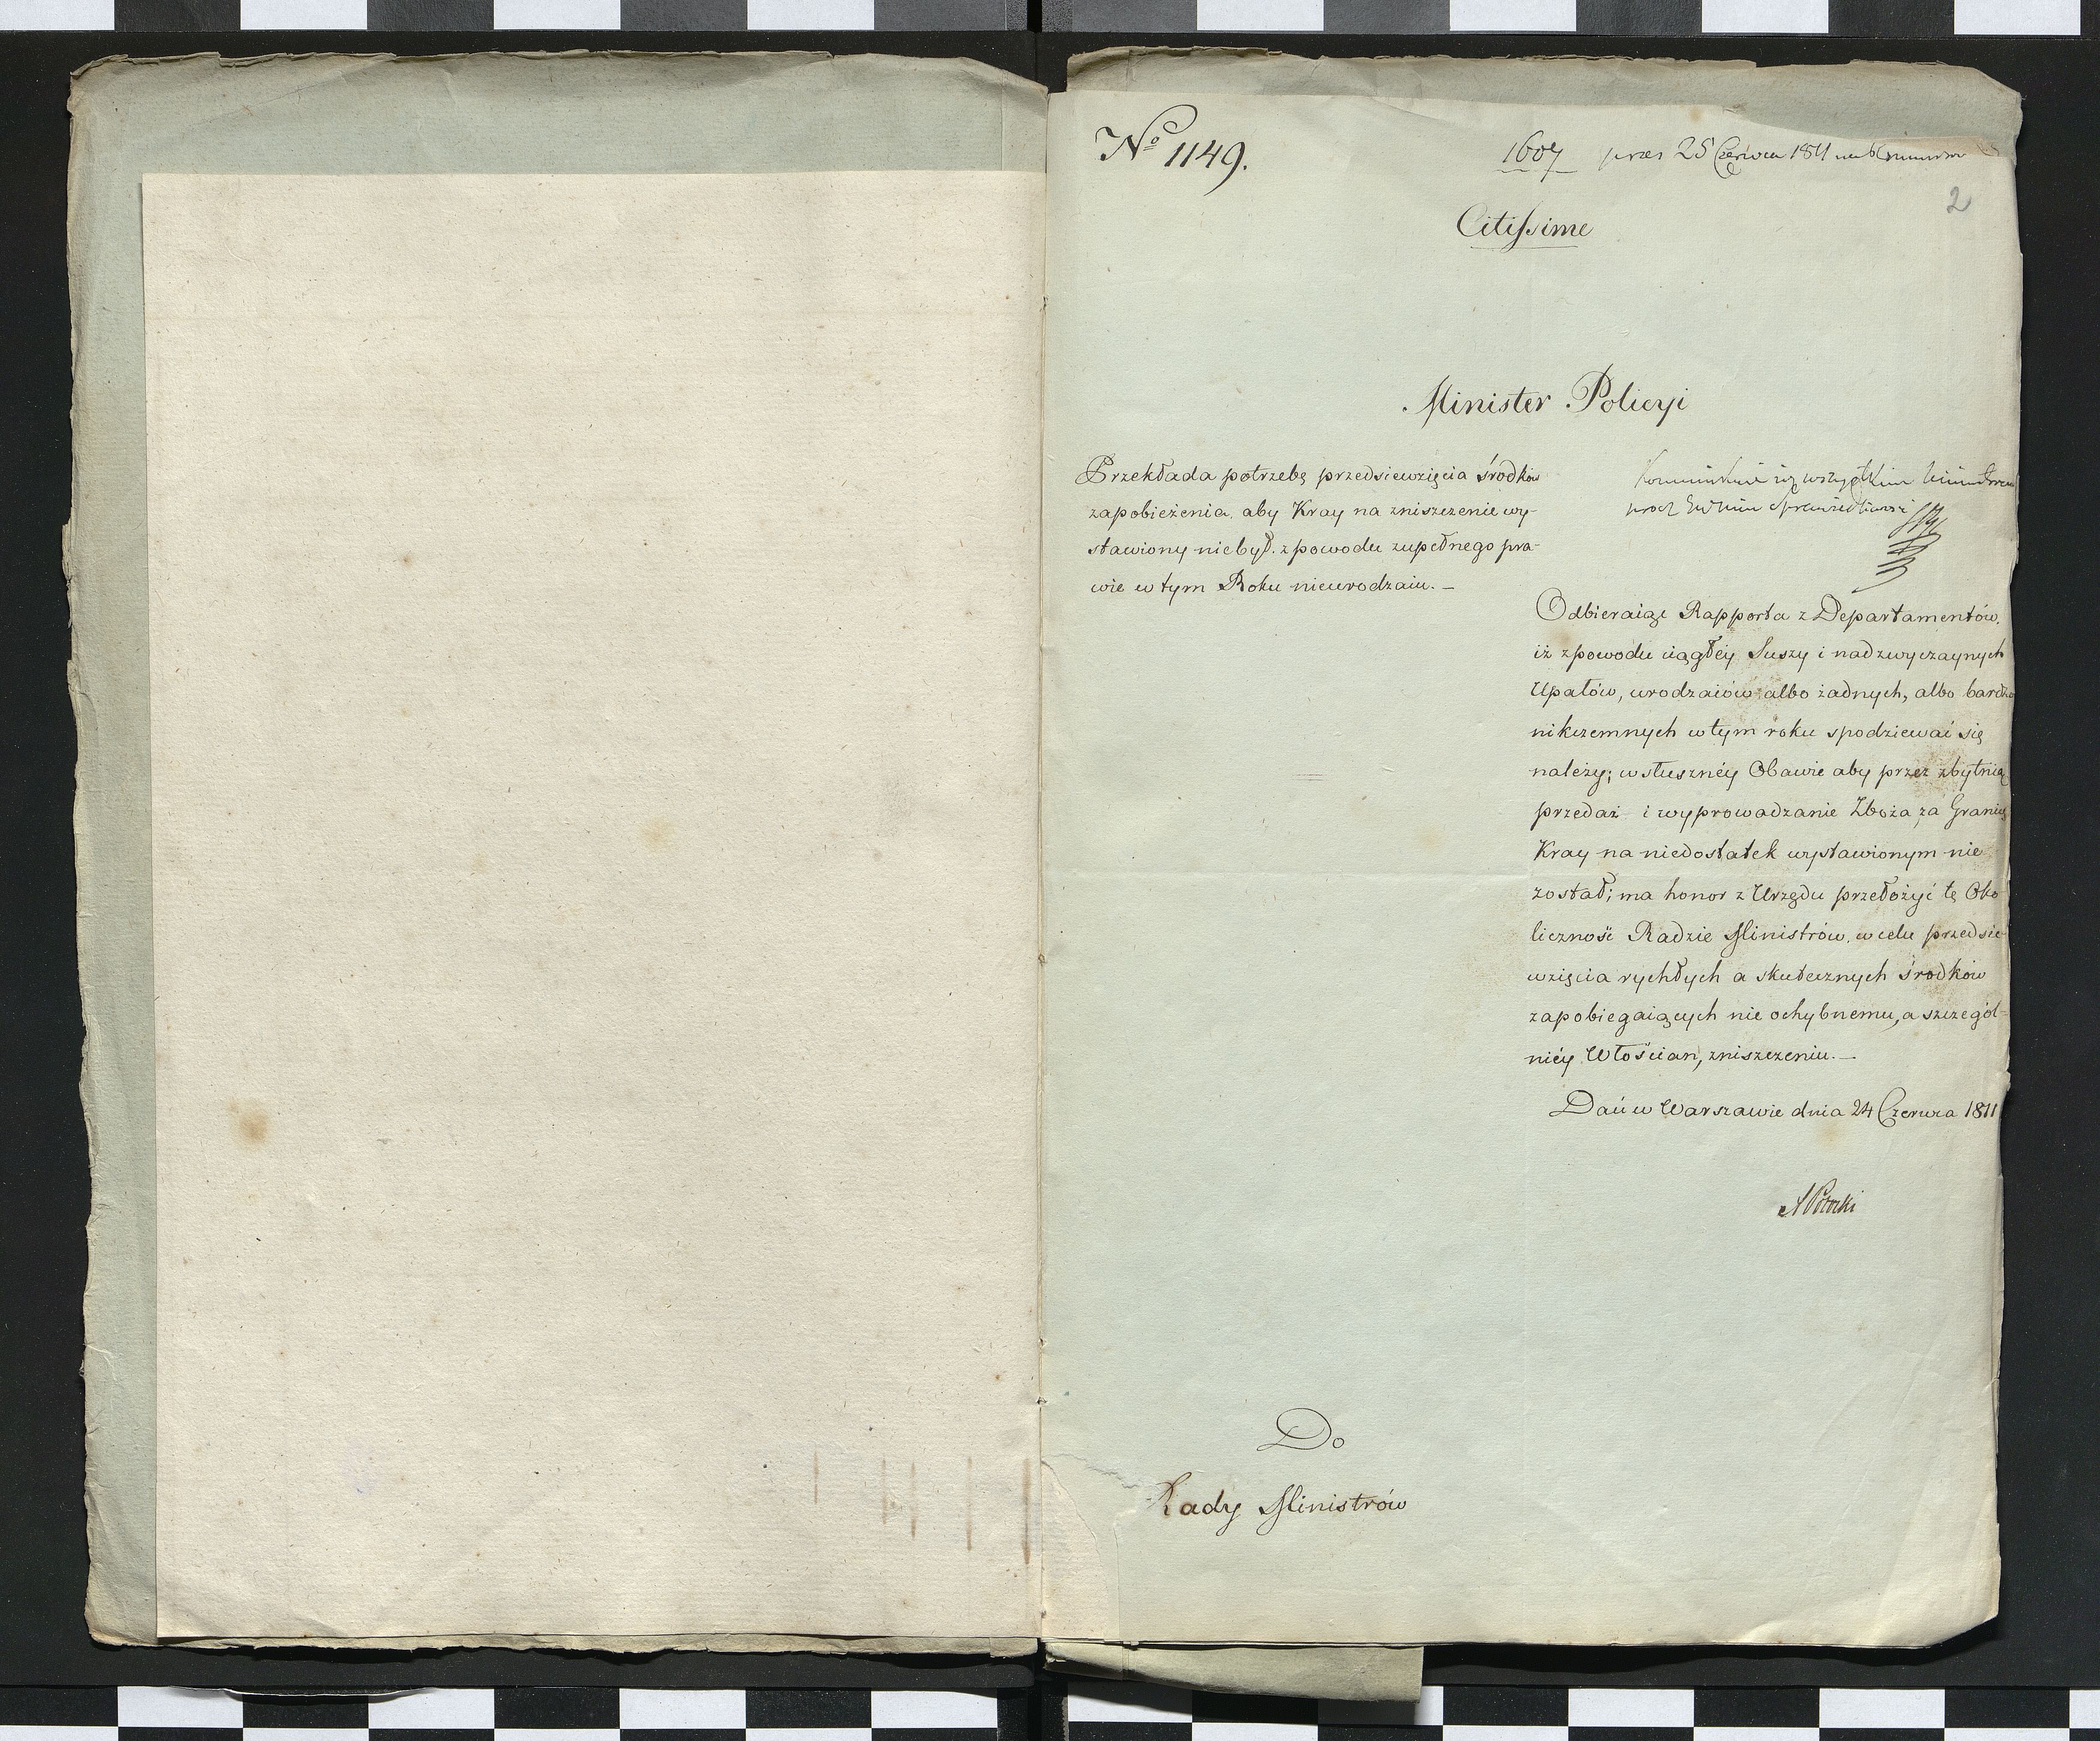 No 1149.
1607 prez 25 Czerwca 1811
2
Citissime
Minister Policyi
Przekłada potrzebę przedsiewzięcia środków
zapobieżenia, aby Kray na zniszczenie wy-
stawiony niebył. z powodu zupełnego pra-
wie w tym Roku nieurodzaiu. —
kommunikuie się wszystkim
Odbieraiąc Rapporta z Departamentów,
iż z powodu ciągłéy Suszy i nadzwyczaynych
Upałów, urodzaiów albo żadnych, albo bardzo
nikczemnych w tym roku spodziewać się
należy; w słusznéy Obawie aby przez zbytnią
przedaż i wyprowadzanie Zboża za Granicę
Kray na niedostatek wystawionym nie
został; ma honor z Urzędu przełożyć tę Oko-
liczność Radzie Ministrów, w celu przedsie-
wzięcia rychłych a skutecznych środków
zapobiegaiących nie ochybnemu, a szczegól-
niéy Włościan, zniszczeniu. —
Dań w Warszawie dnia 24 Czerwca 1811
A Potocki
Do
Rady Ministrów